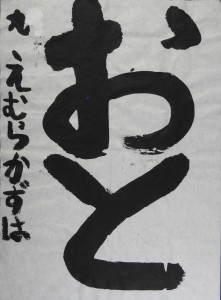 おと
九、えむらかずは